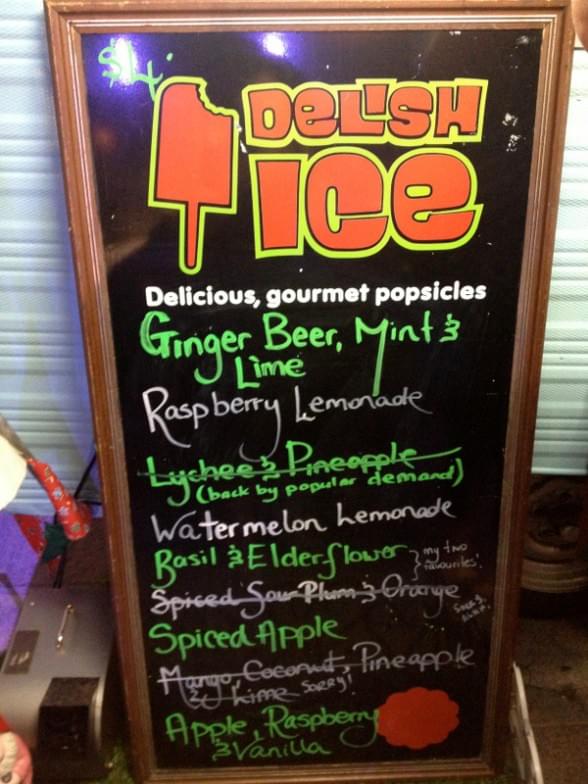 $4.
DELISH
ICE
Delicious, gourmet popsicles
Ginger Beer, Mint &
Lime
Raspberry Lemonade
Lychee & Pineapple
(back by popular demand)
Watermelon Lemonade
Basil & Elderflower } my two
favourites!
Spiced Sour Plum & Orange
Spiced Apple
Mango, Coconut, Pineapple
& Lime Sorry!
Apple, Raspberry
& Vanilla